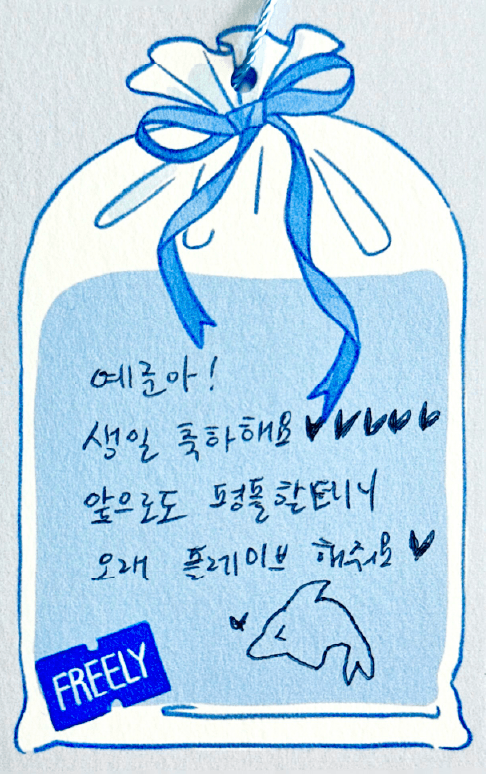 예준아!
생일 축하해요♥♥♥♥♥
앞으로도 평플할테니
오래 플레이브 해주세요♥
FREELY